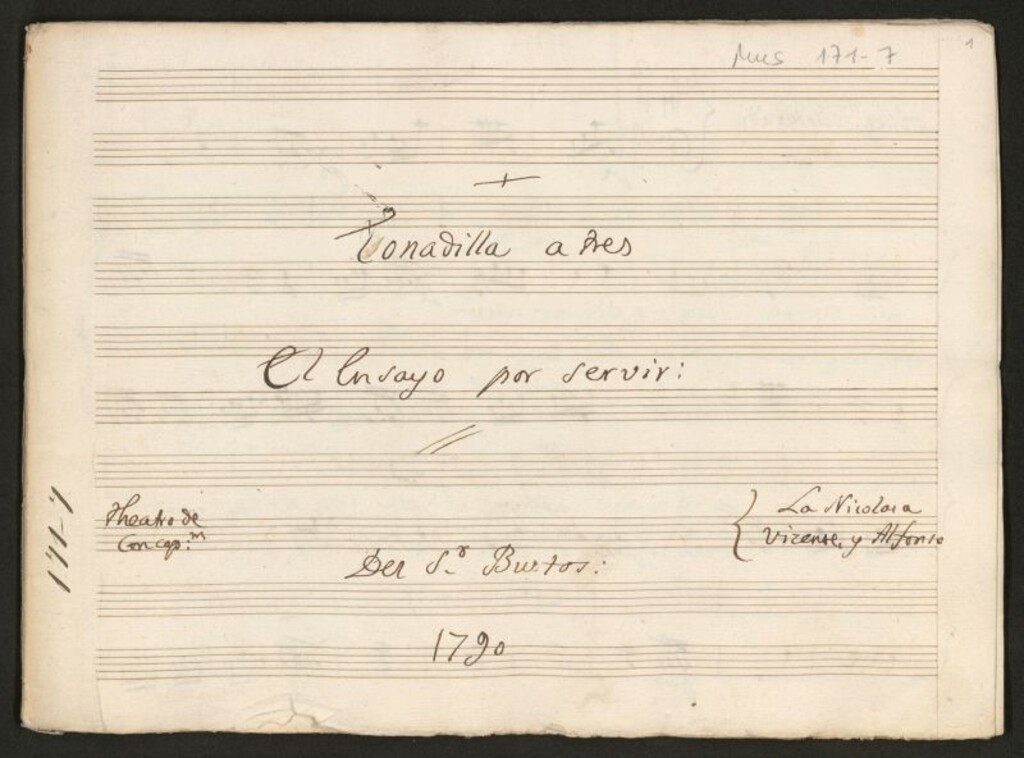 Mus 171-7
1
Tonadilla a tres
El Ensayo por servir:
171-7
Theatro de
Concep.n
La Nicolasa
Vicente, y Alfonso
Del S.r Bustos:
1790